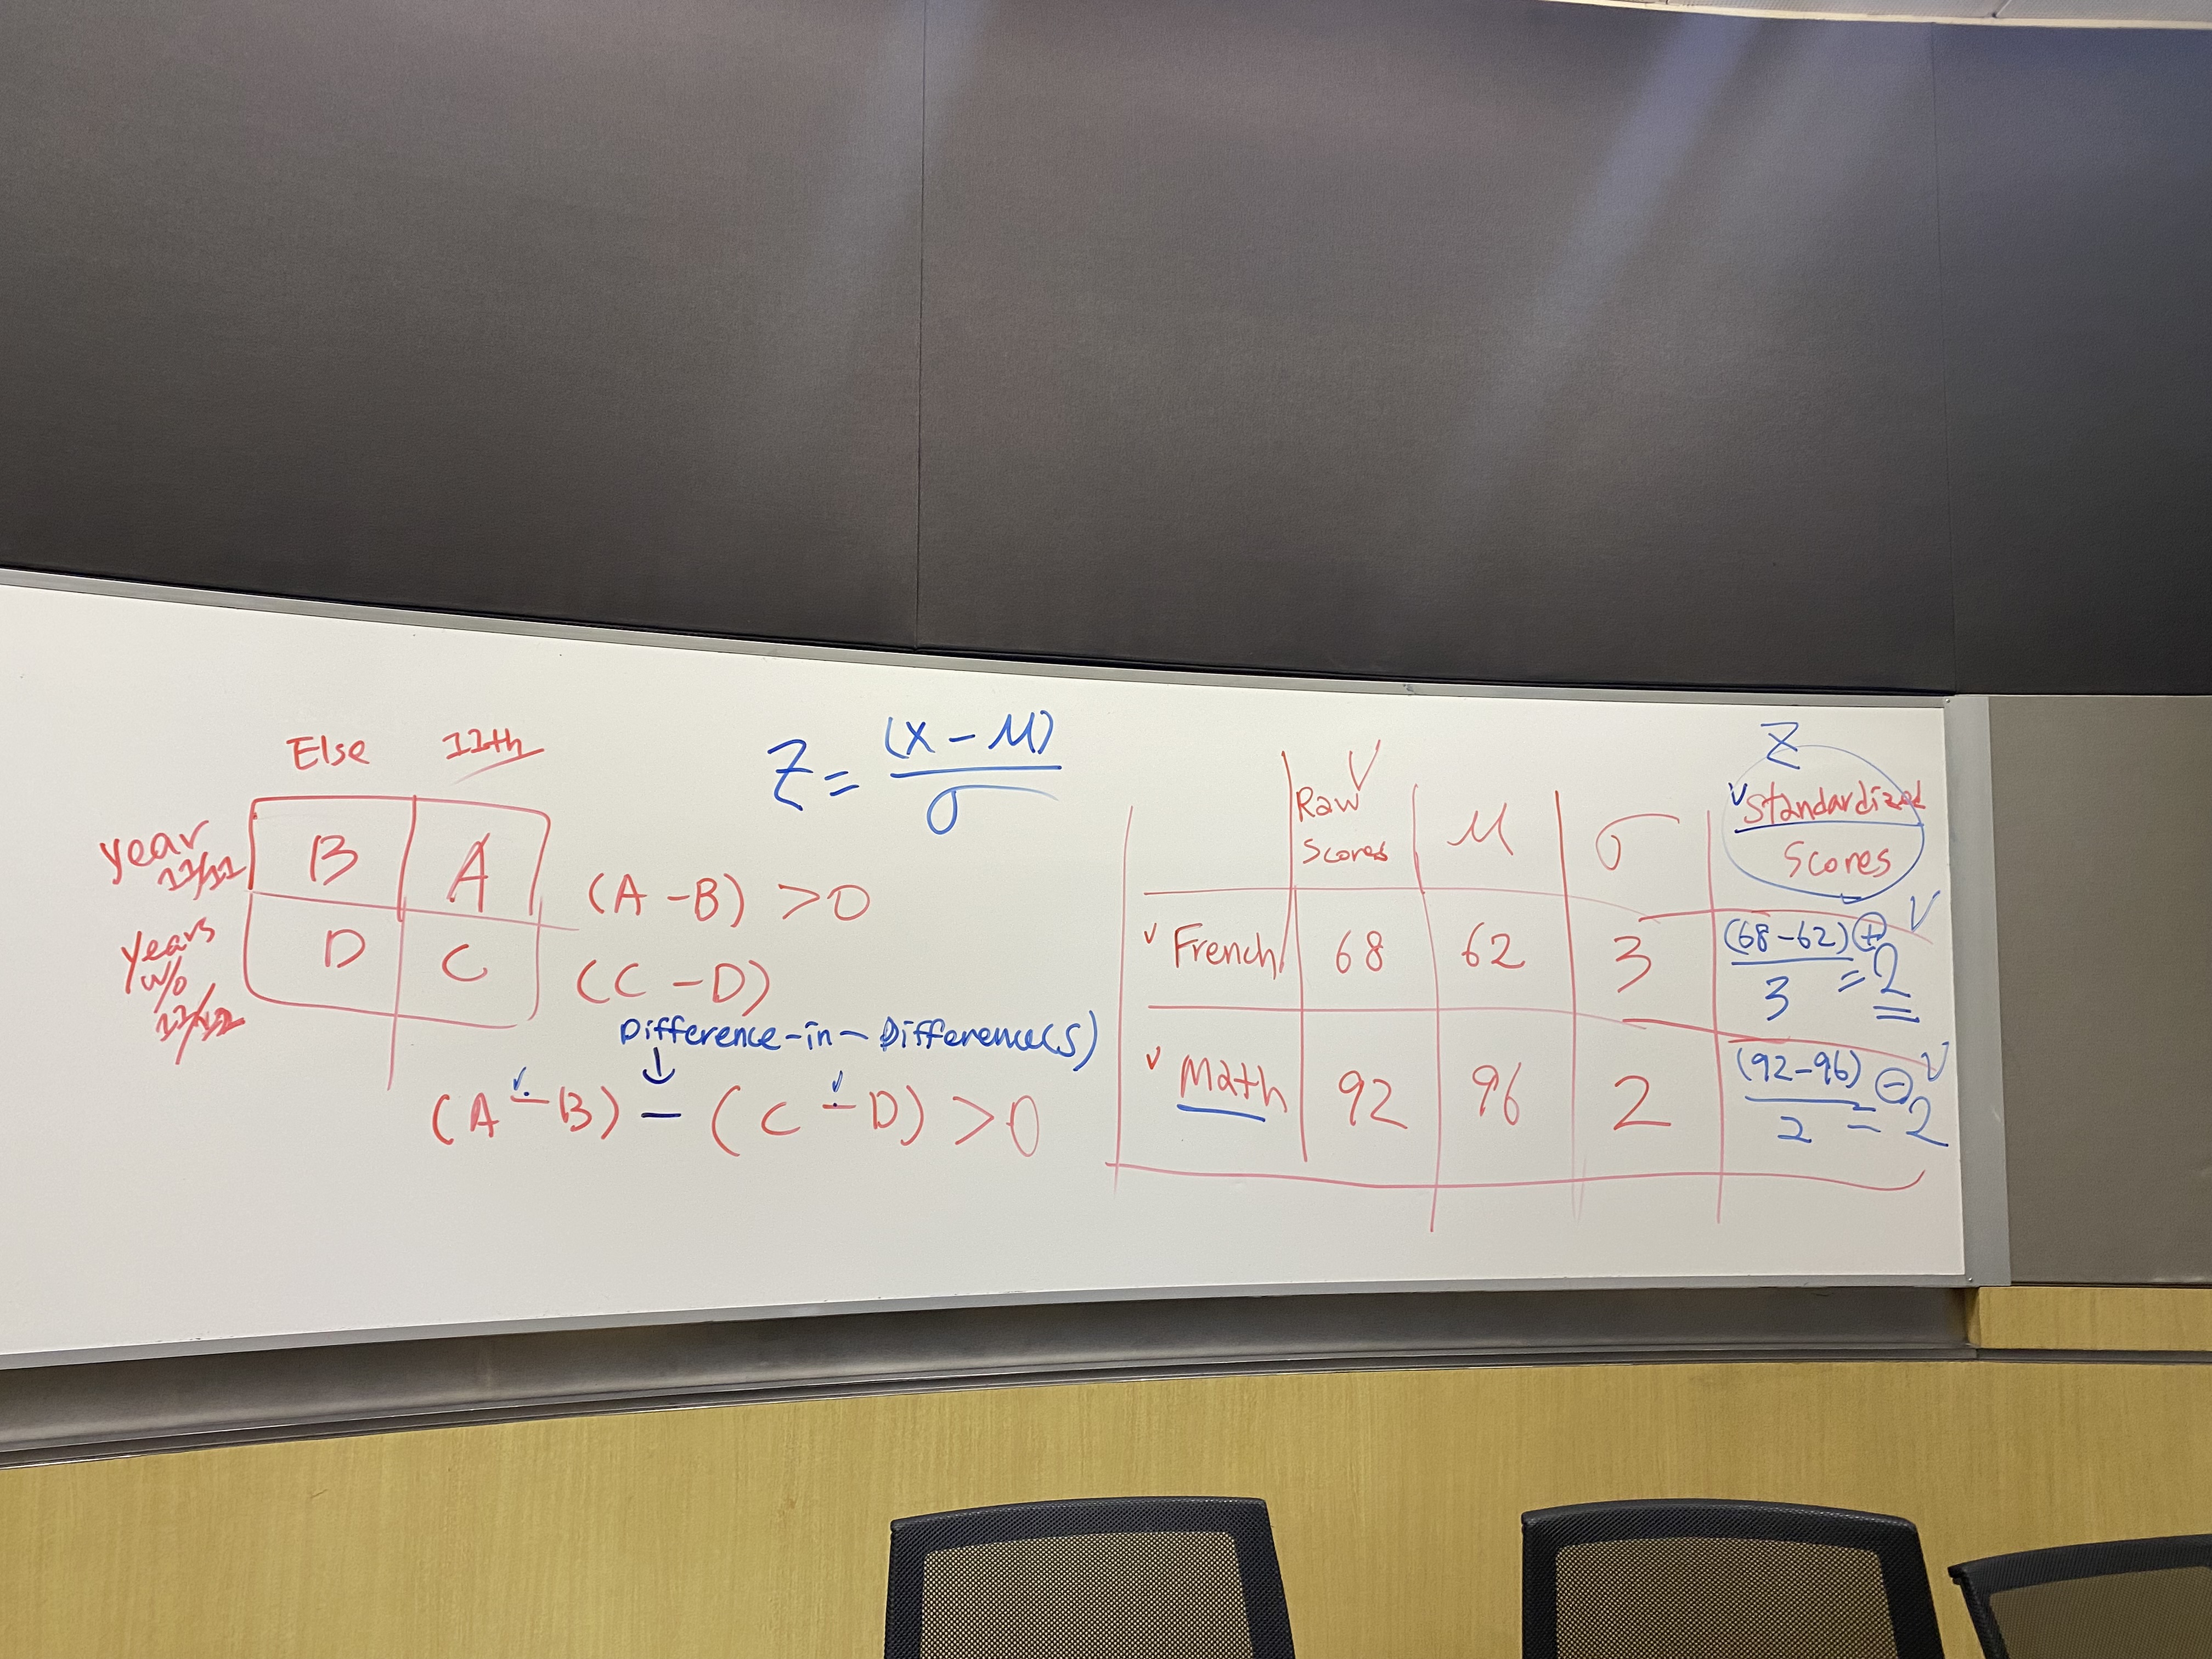 Else 11th
year B A
11/11
(A - B) > 0
years D C
w/o
11/11
(C - D)
Difference-in-Difference(s)
↓
(A - B) - (C - D) > 0
Z = (X - M)
σ
Z
Raw Scores M σ Standardized Scores
French 68 62 3 (68-62) / 3 = +2
Math 92 96 2 (92-96) / 2 = -2